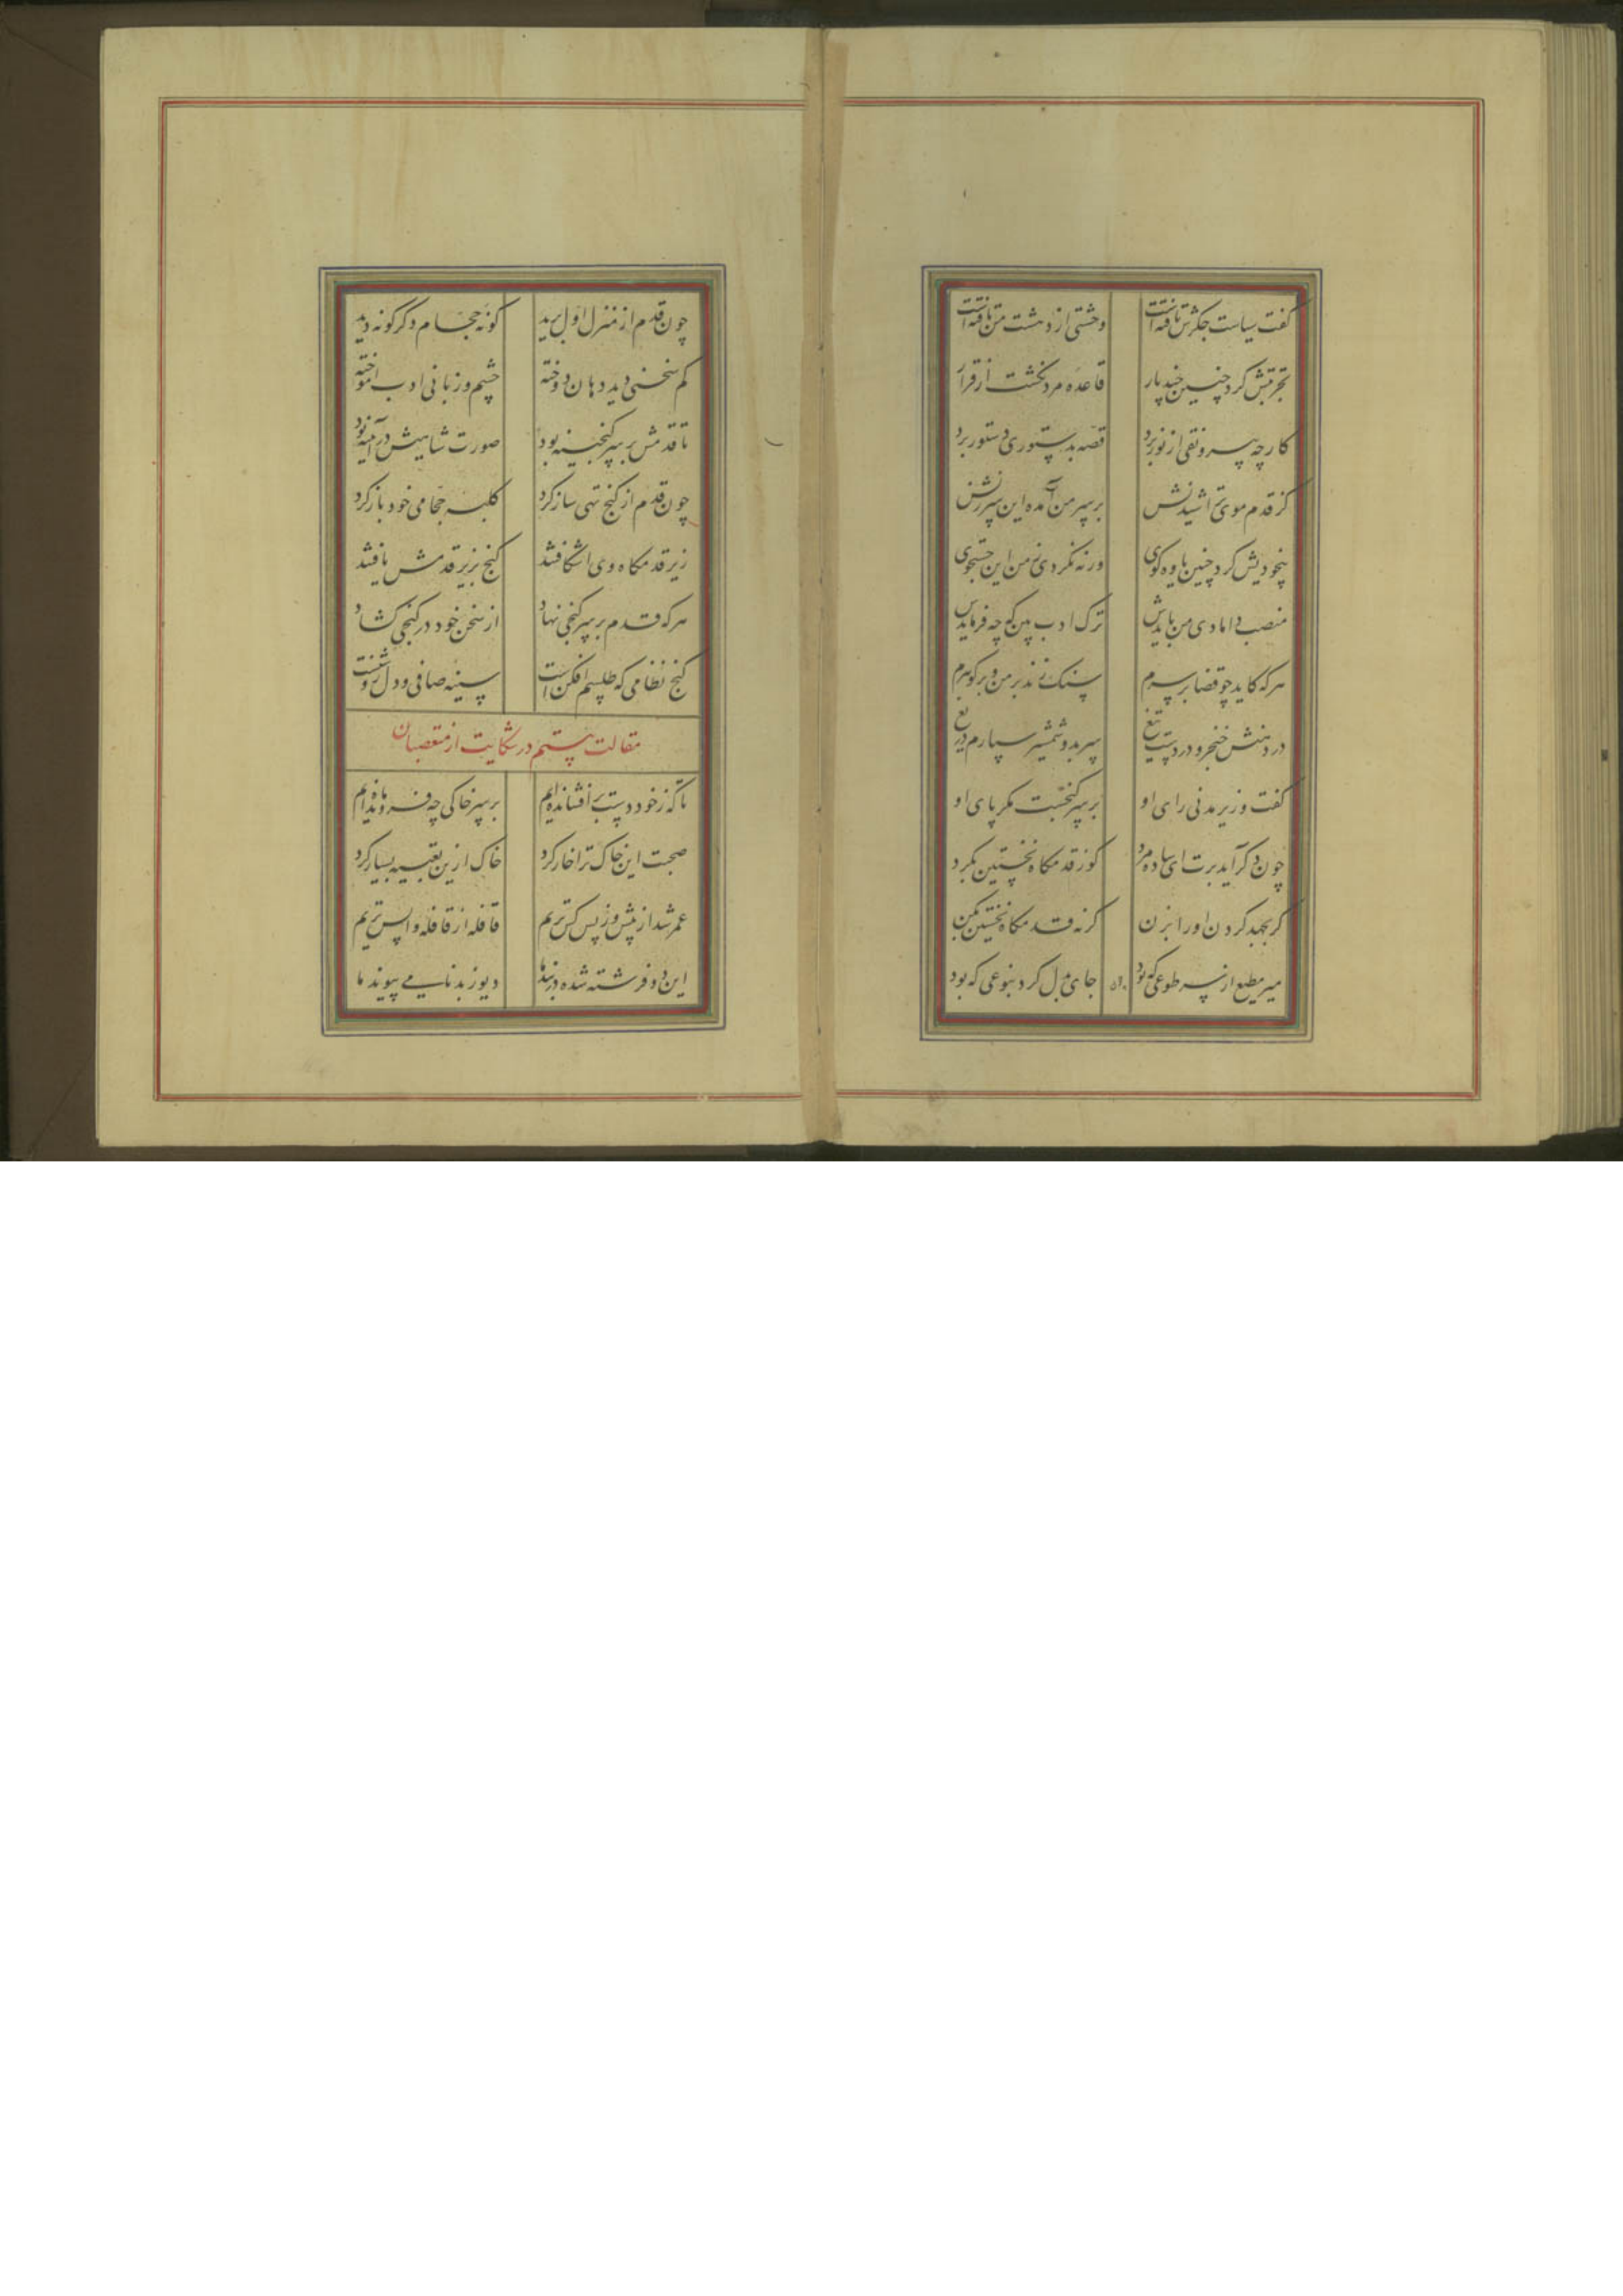 گفت سیاست جگرش تافته است وحشتی از دهشت من یافته است
تجربتش کرد چنین چند بار قاعده مرد نگشت از قرار
کار چو بی رونقی از نور برد قصه بدستوری دستور برد
کز قدم موی تراشیدنش بر سر من آمده این سرزنش
بیخودیش کرد چنین یاوه گوی ورنه نکردی ز من این جستجوی
منصب دامادی من بایدش ترک ادب بین که چه فرمایدش
هر که کاید چو قضا بر سرم سنگ زند بر من و بر گوهرم
در دهنش خنجر و در دست تیغ سر بدو شمشیر سپارم دریغ
گفت وزیر مدنی رای او بر سر گنجست مگر پای او
چون دگر آید برت ای ساده مرد گو ز قدمگاه نخستین بگرد
گر بجهد گردن او را بزن گر نه قدمگاه نخستین بکن
میر مطیع از سر طوعی که بود جای بدل کرد بنوعی که بود
چون قدم از منزل اول برید گونه حجام دگرگونه دید
کم سخنی دید دهان دوخته چشم و زبانی ادب آموخته
تا قدمش بر سر گنجینه بود صورت شاهیش در آینه بود
چون قدم از گنج تهی ساز کرد کلبه حجامی خود باز کرد
زیر قدمگاه وی اشکافتند گنج بزیر قدمش یافتند
هر که قدم بر سر گنجی نهاد از سخن خود در گنجی گشاد
گنج نظامی که طلسم افکن است سینه صافی و دل روشنست
مقالت بیستم در شکایت از متعصبان
ما که ز خود دست برافشانده ایم بر سر خاکی چه فرومانده ایم
صحبت این خاک ترا خار کرد خاک ازین تعبیه بسیار کرد
عمر شد از پیش و ز پس کس تریم قافله از قافله واپس تریم
این دو فرشته شده در بند ما دیو ز بدنامی پیوند ما